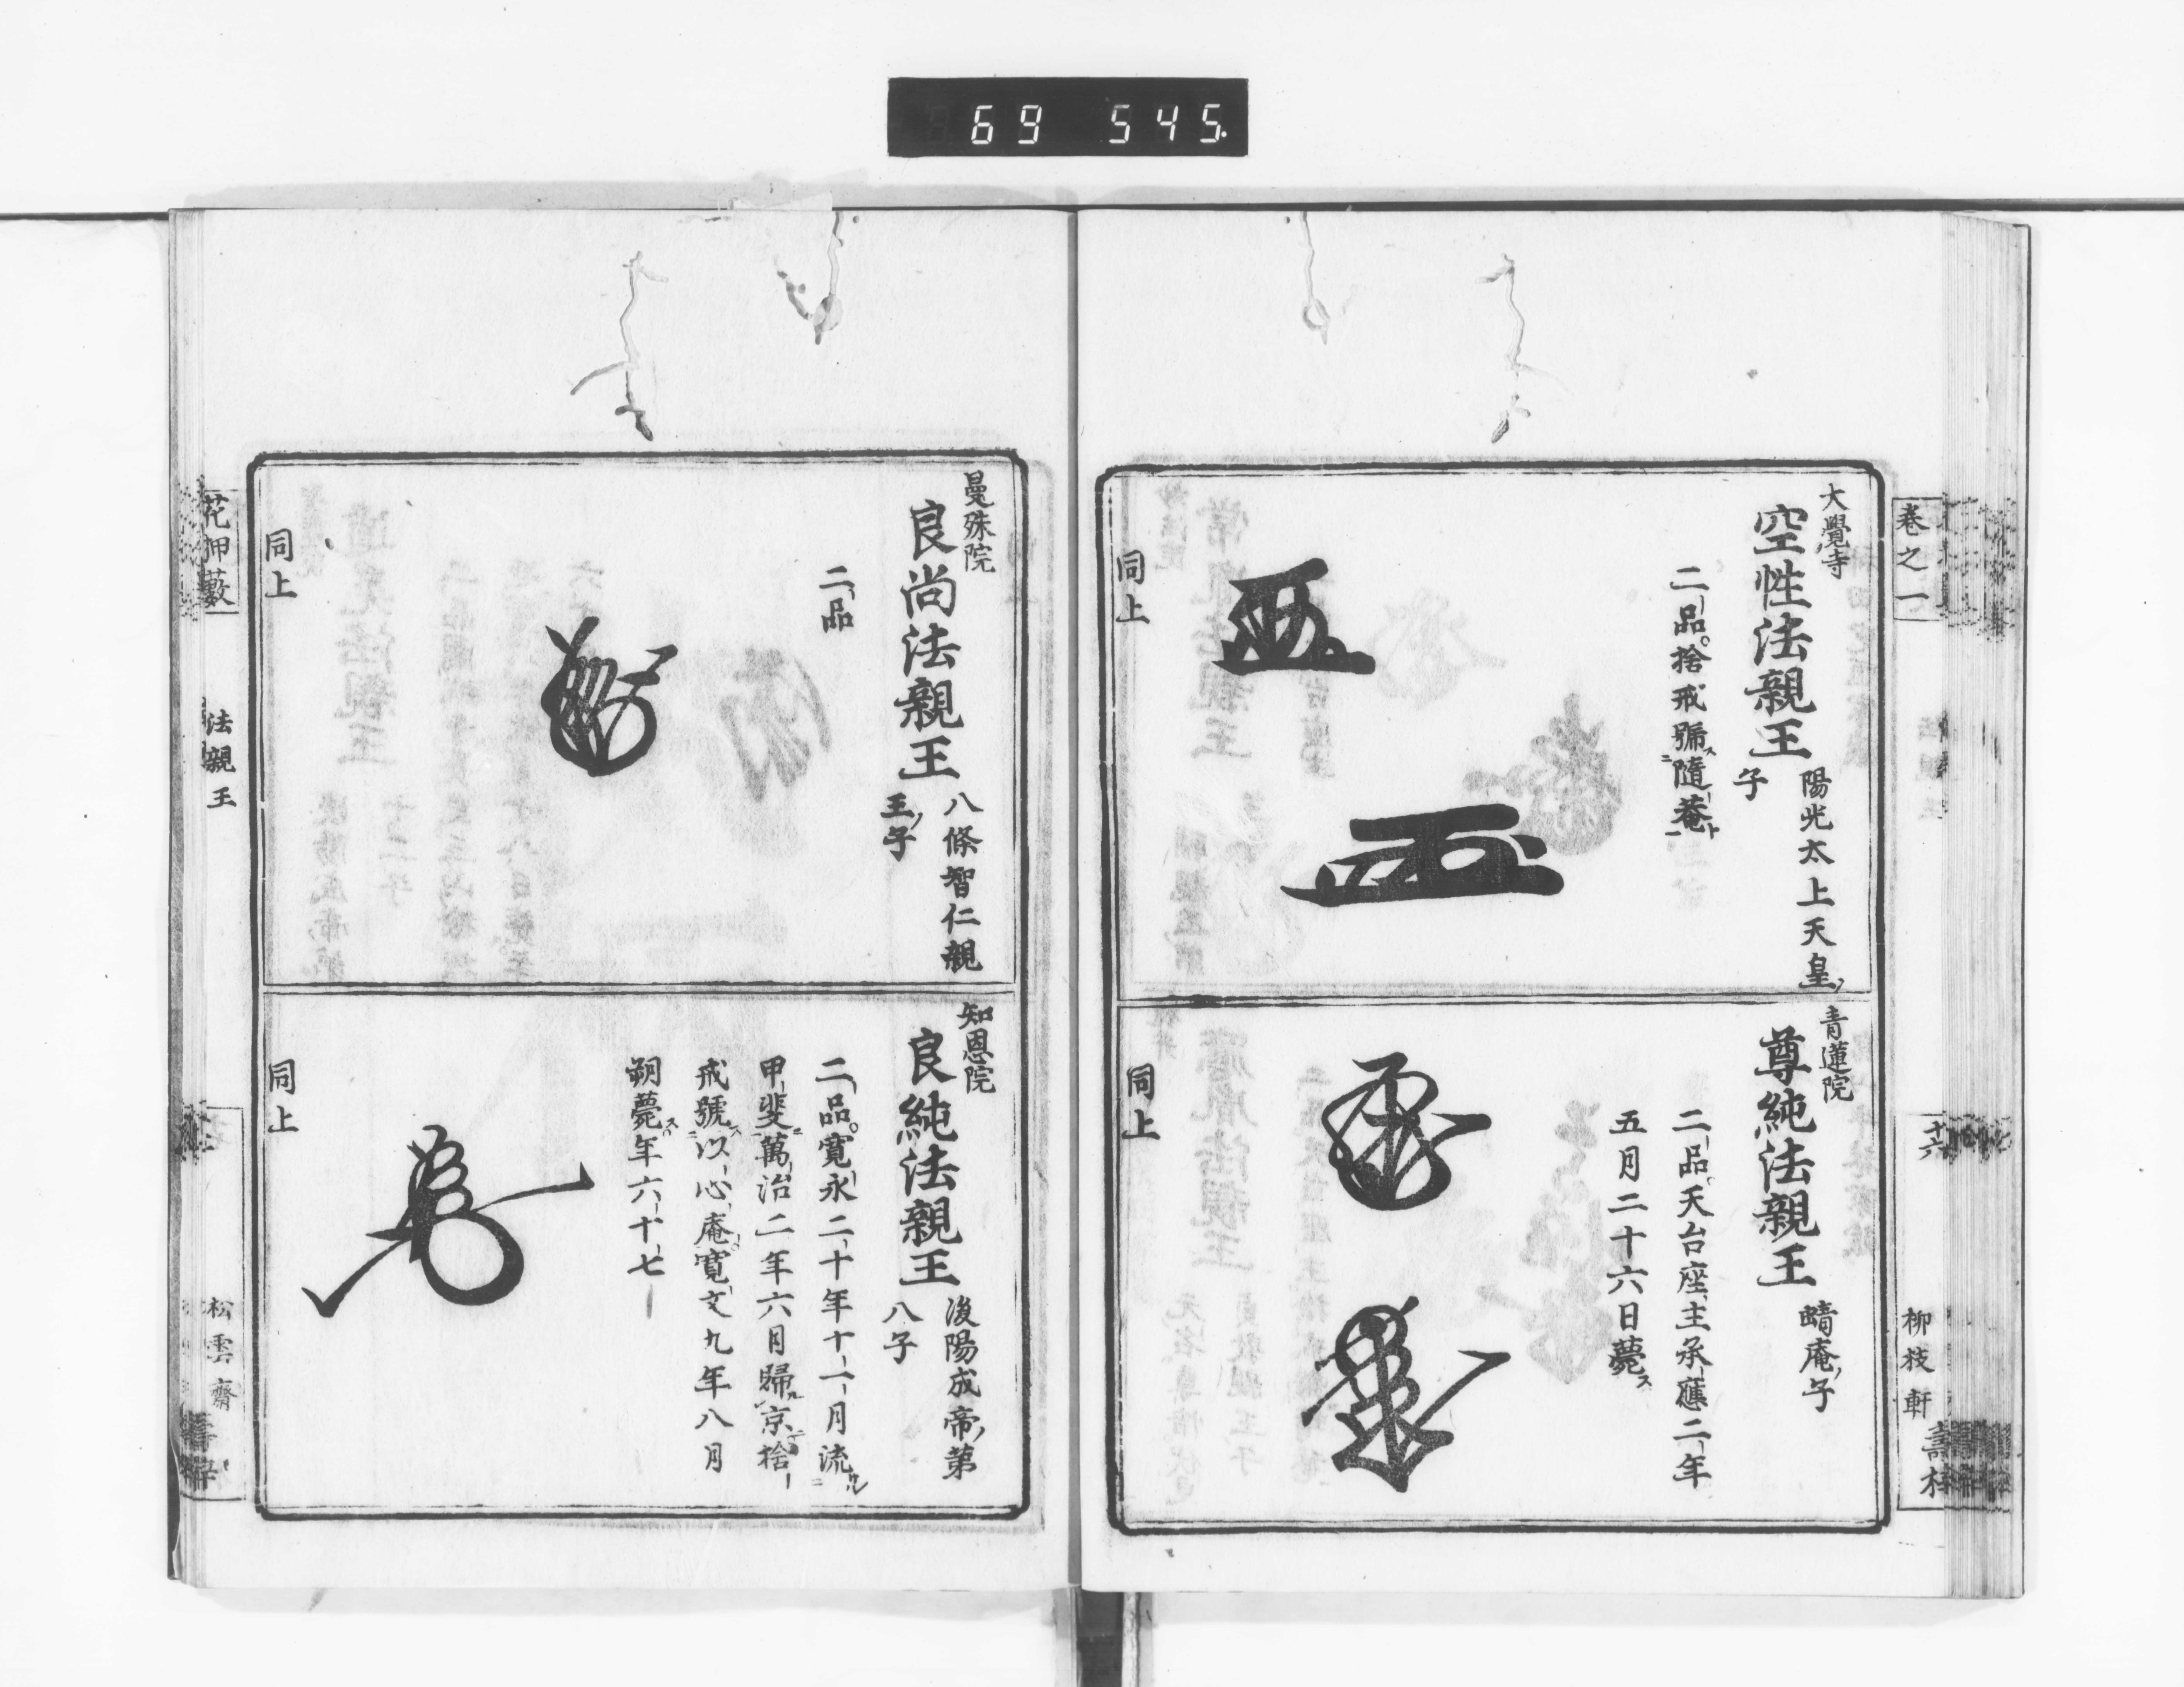 69 545.
卷之一
十六
柳枝軒
大覺寺
空性法親王
陽光太上天皇ノ
子
二品捨戒號ス隨菴ト
同上
青蓮院
尊純法親王
晴庵ノ子
二品天台座主承應二年
五月二十六日薨ス
同上
曼殊院
良尚法親王
八條智仁親
王ノ子
二品
同上
知恩院
良純法親王
後陽成帝ノ第
八子
二品寛永二十年十一月流
甲斐萬治二年六月歸京捨
戒號以心庵寛文九年八月
朔薨年六十七
同上
花押藪
法親王
松雲齋